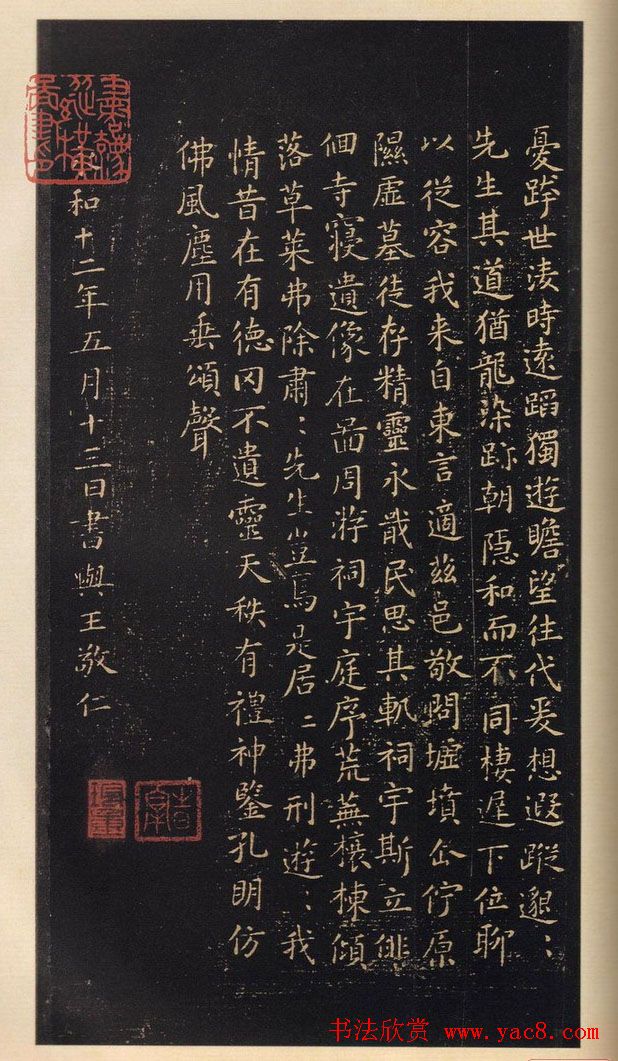 憂跨世淩時遠蹈獨遊瞻望往代爰想遐蹤邈:
先生其道猶龍染跡朝隐和而不同棲遲下位聊
以從容我来自東言適兹邑敬問墟墳企佇原
隰虚墓徒存精靈永戢民思其軌祠宇斯立俳
佪寺寝遺像在啚周游祠宇庭序荒蕪榱棟傾
落草莱弗除肅:先生豈焉是居:弗刑遊:我
情昔在有德罔不遺靈天秩有禮神鑒孔明仿
佛風塵用垂頌聲
和十二年五月十三日書與王敬仁
书法欣赏 www.yac8.com